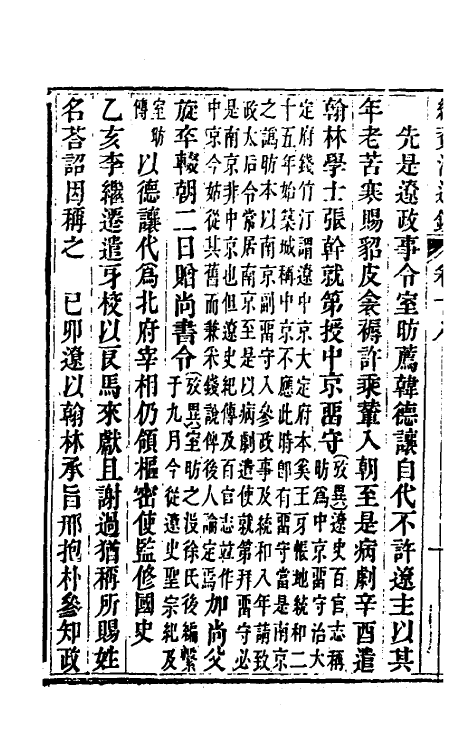 續資治通鑑 卷十八
先是遼政事令室昉薦韓德讓自代不許遼主以其
年老苦寒賜貂皮衾褥許乘輦入朝至是病劇辛酉遣
翰林學士張幹就第授中京畱守(攷異)遼史百官志稱
昉爲中京畱守統治大
定府錢竹汀謂遼中京大定府本奚王牙帳地統和二
十五年始築城稱中京不應此時郎有畱守當是南京
之譌昉本以南京副畱守入參政事及統和八年請致
政太后令常居南京至是以病劇遣使就第拜畱守必
是南京非中京也但遼史紀傳及百官志竝作
中京今姑從其舊而兼采錢說俾後人論定焉加尚父
旋卒輟朝二日贈尚書令(攷異)室昉之沒徐氏後編繫
于九月今從遼史聖宗紀及
室昉
傳以德讓代爲北府宰相仍領樞密使監修國史
乙亥李繼遷遣牙校以良馬來獻且謝過猶稱所賜姓
名荅詔因稱之 已卯遼以翰林承旨邢抱朴參知政